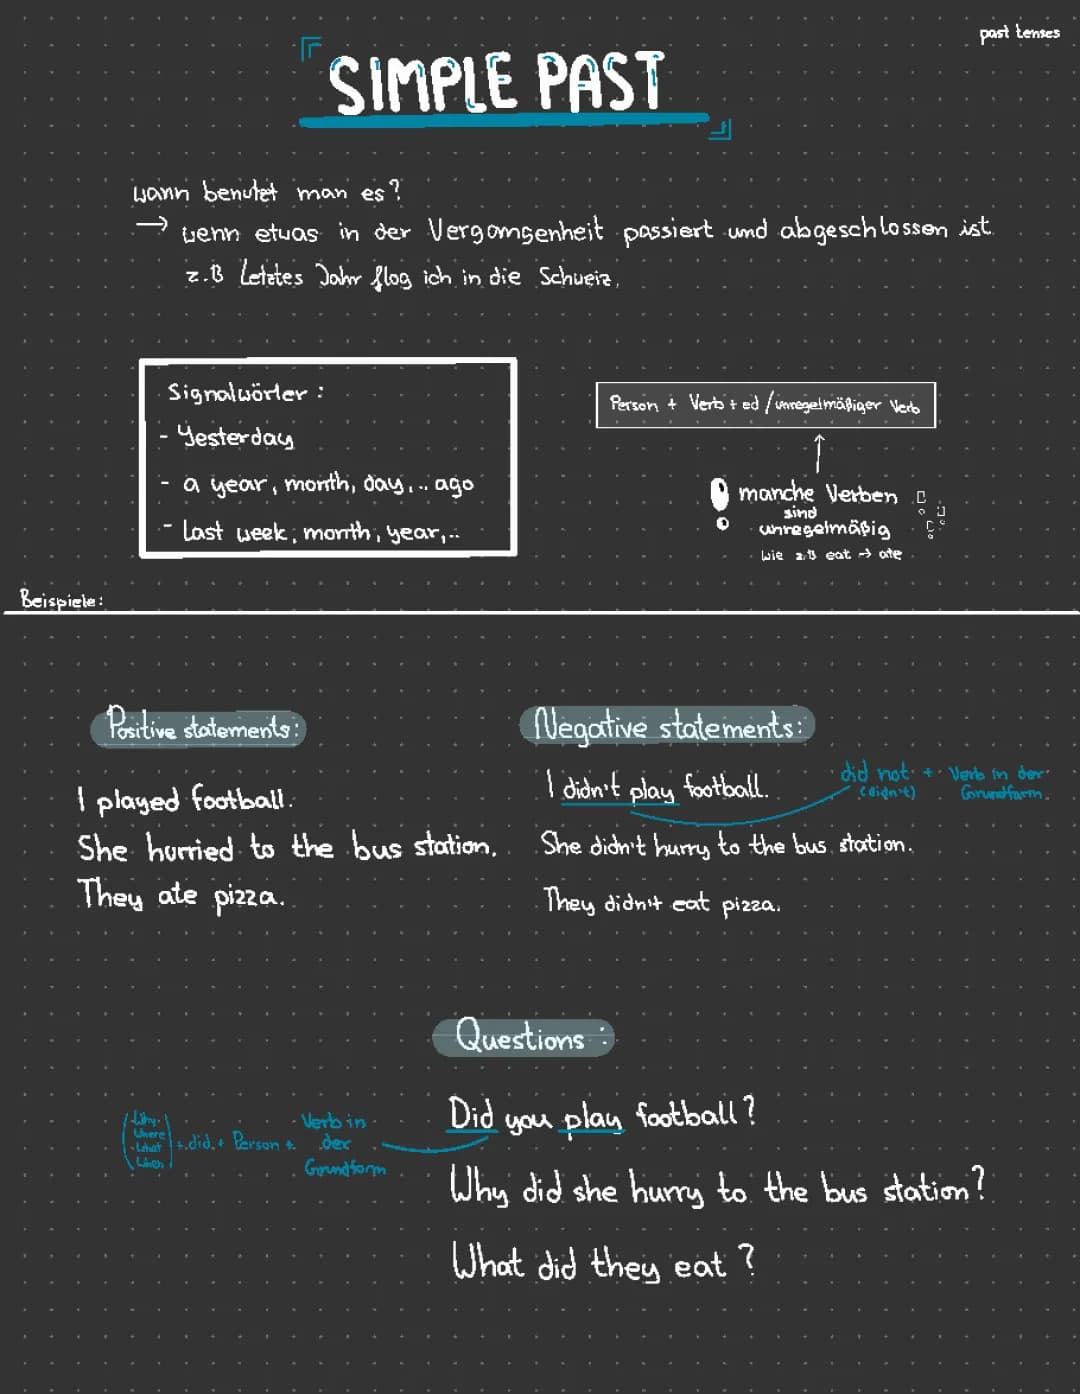 past tenses
SIMPLE PAST
wann benutzt man es?
→ wenn etwas in der Vergangenheit passiert und abgeschlossen ist
z.B Letztes Jahr flog ich in die Schweiz.
Signalwörter :
- Yesterday
- a year, month, day,.. ago
- Last week, month, year,..
Person + Verb + ed / unregelmäßiger Verb
↑
! manche Verben
sind
unregelmäßig
wie z.B eat → ate
Beispiele:
Positive statements:
I played football.
She hurried to the bus station.
They ate pizza.
Negative statements:
I didn't play football.
did not + Verb in der
(didn't) Grundform
She didn't hurry to the bus station.
They didn't eat pizza.
Questions :
(Why
Where
What
When) + did + Person + Verb in
der
Grundform
Did you play football?
Why did she hurry to the bus station?
What did they eat ?